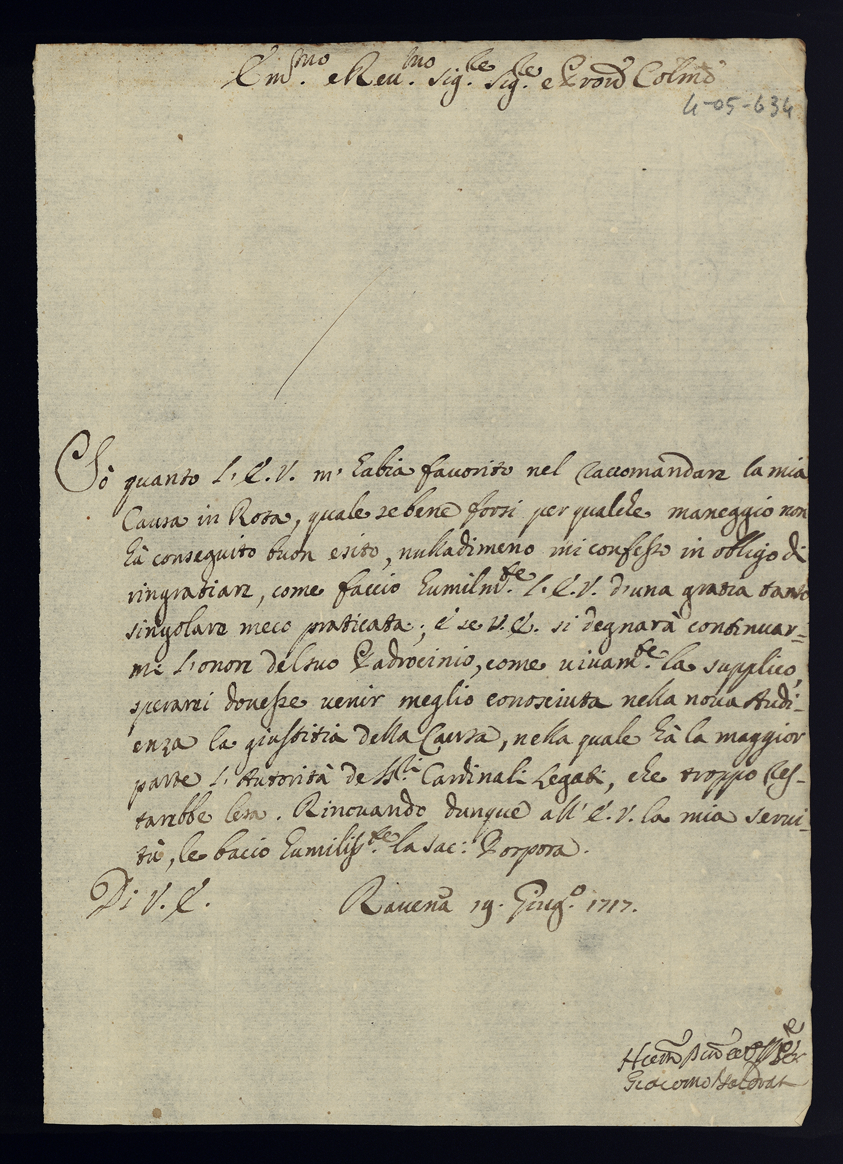 Em.mo e Reu.mo Sig.re Sig.re e Pron Colmo
4-05-634
Sò quanto l'E.V. m'habia fauorito nel raccomandare la mia
Causa in Rota, quale se bene forsi per qualche maneggio non
hà conseguito buon esito, nulladimeno mi confesso in obligo di
ringratiare, come faccio humilm.te l'E.V. d'una gratia tanto
singolare meco praticata; E se V.E. si degnarà continuar-
mi l'onore del suo Padrocinio, come uiuam.te la supplico,
sperarei douesse uenir meglio conosciuta nella noua Audi-
enza la giustitia della Causa, nella quale hà la maggior
parte l'Autorità de SS.ri Cardinali Legati, che troppo res-
tarebbe lesa. Rinouando dunque all'E.V. la mia serui-
tù, le bacio humiliss.te la sac: Porpora.
Di V.E. Rauena 19. Giug.o 1717.
Giacomo